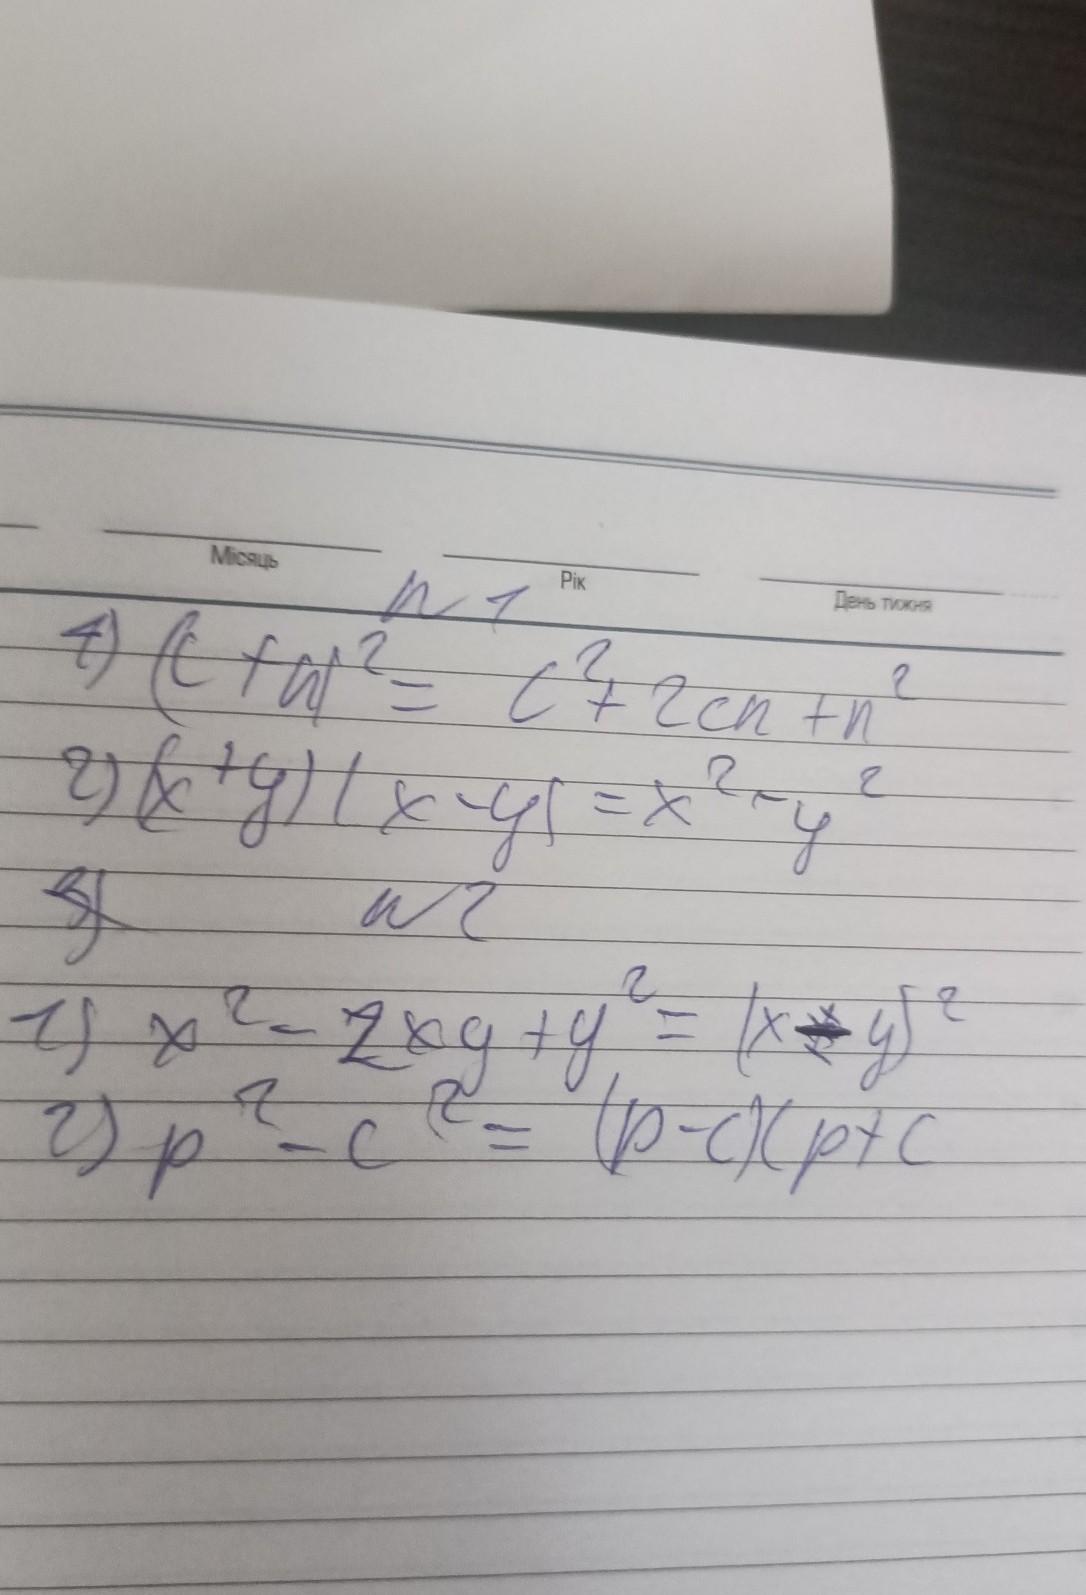 Місяць Рік День тижня
n 1
1) (c + n)² = c² + 2cn + n²
2) (x + y) (x - y) = x² - y²
3) n 2
1) x² - 2xy + y² = (x - y)²
2) p² - c² = (p - c)(p + c